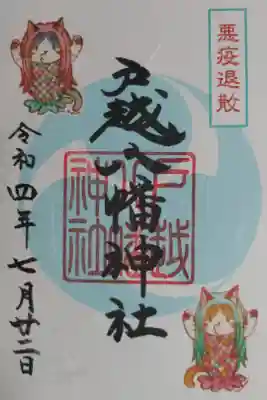 悪疫退散
戸越八幡神社
戸越
八幡
神社
令和四年七月廿二日